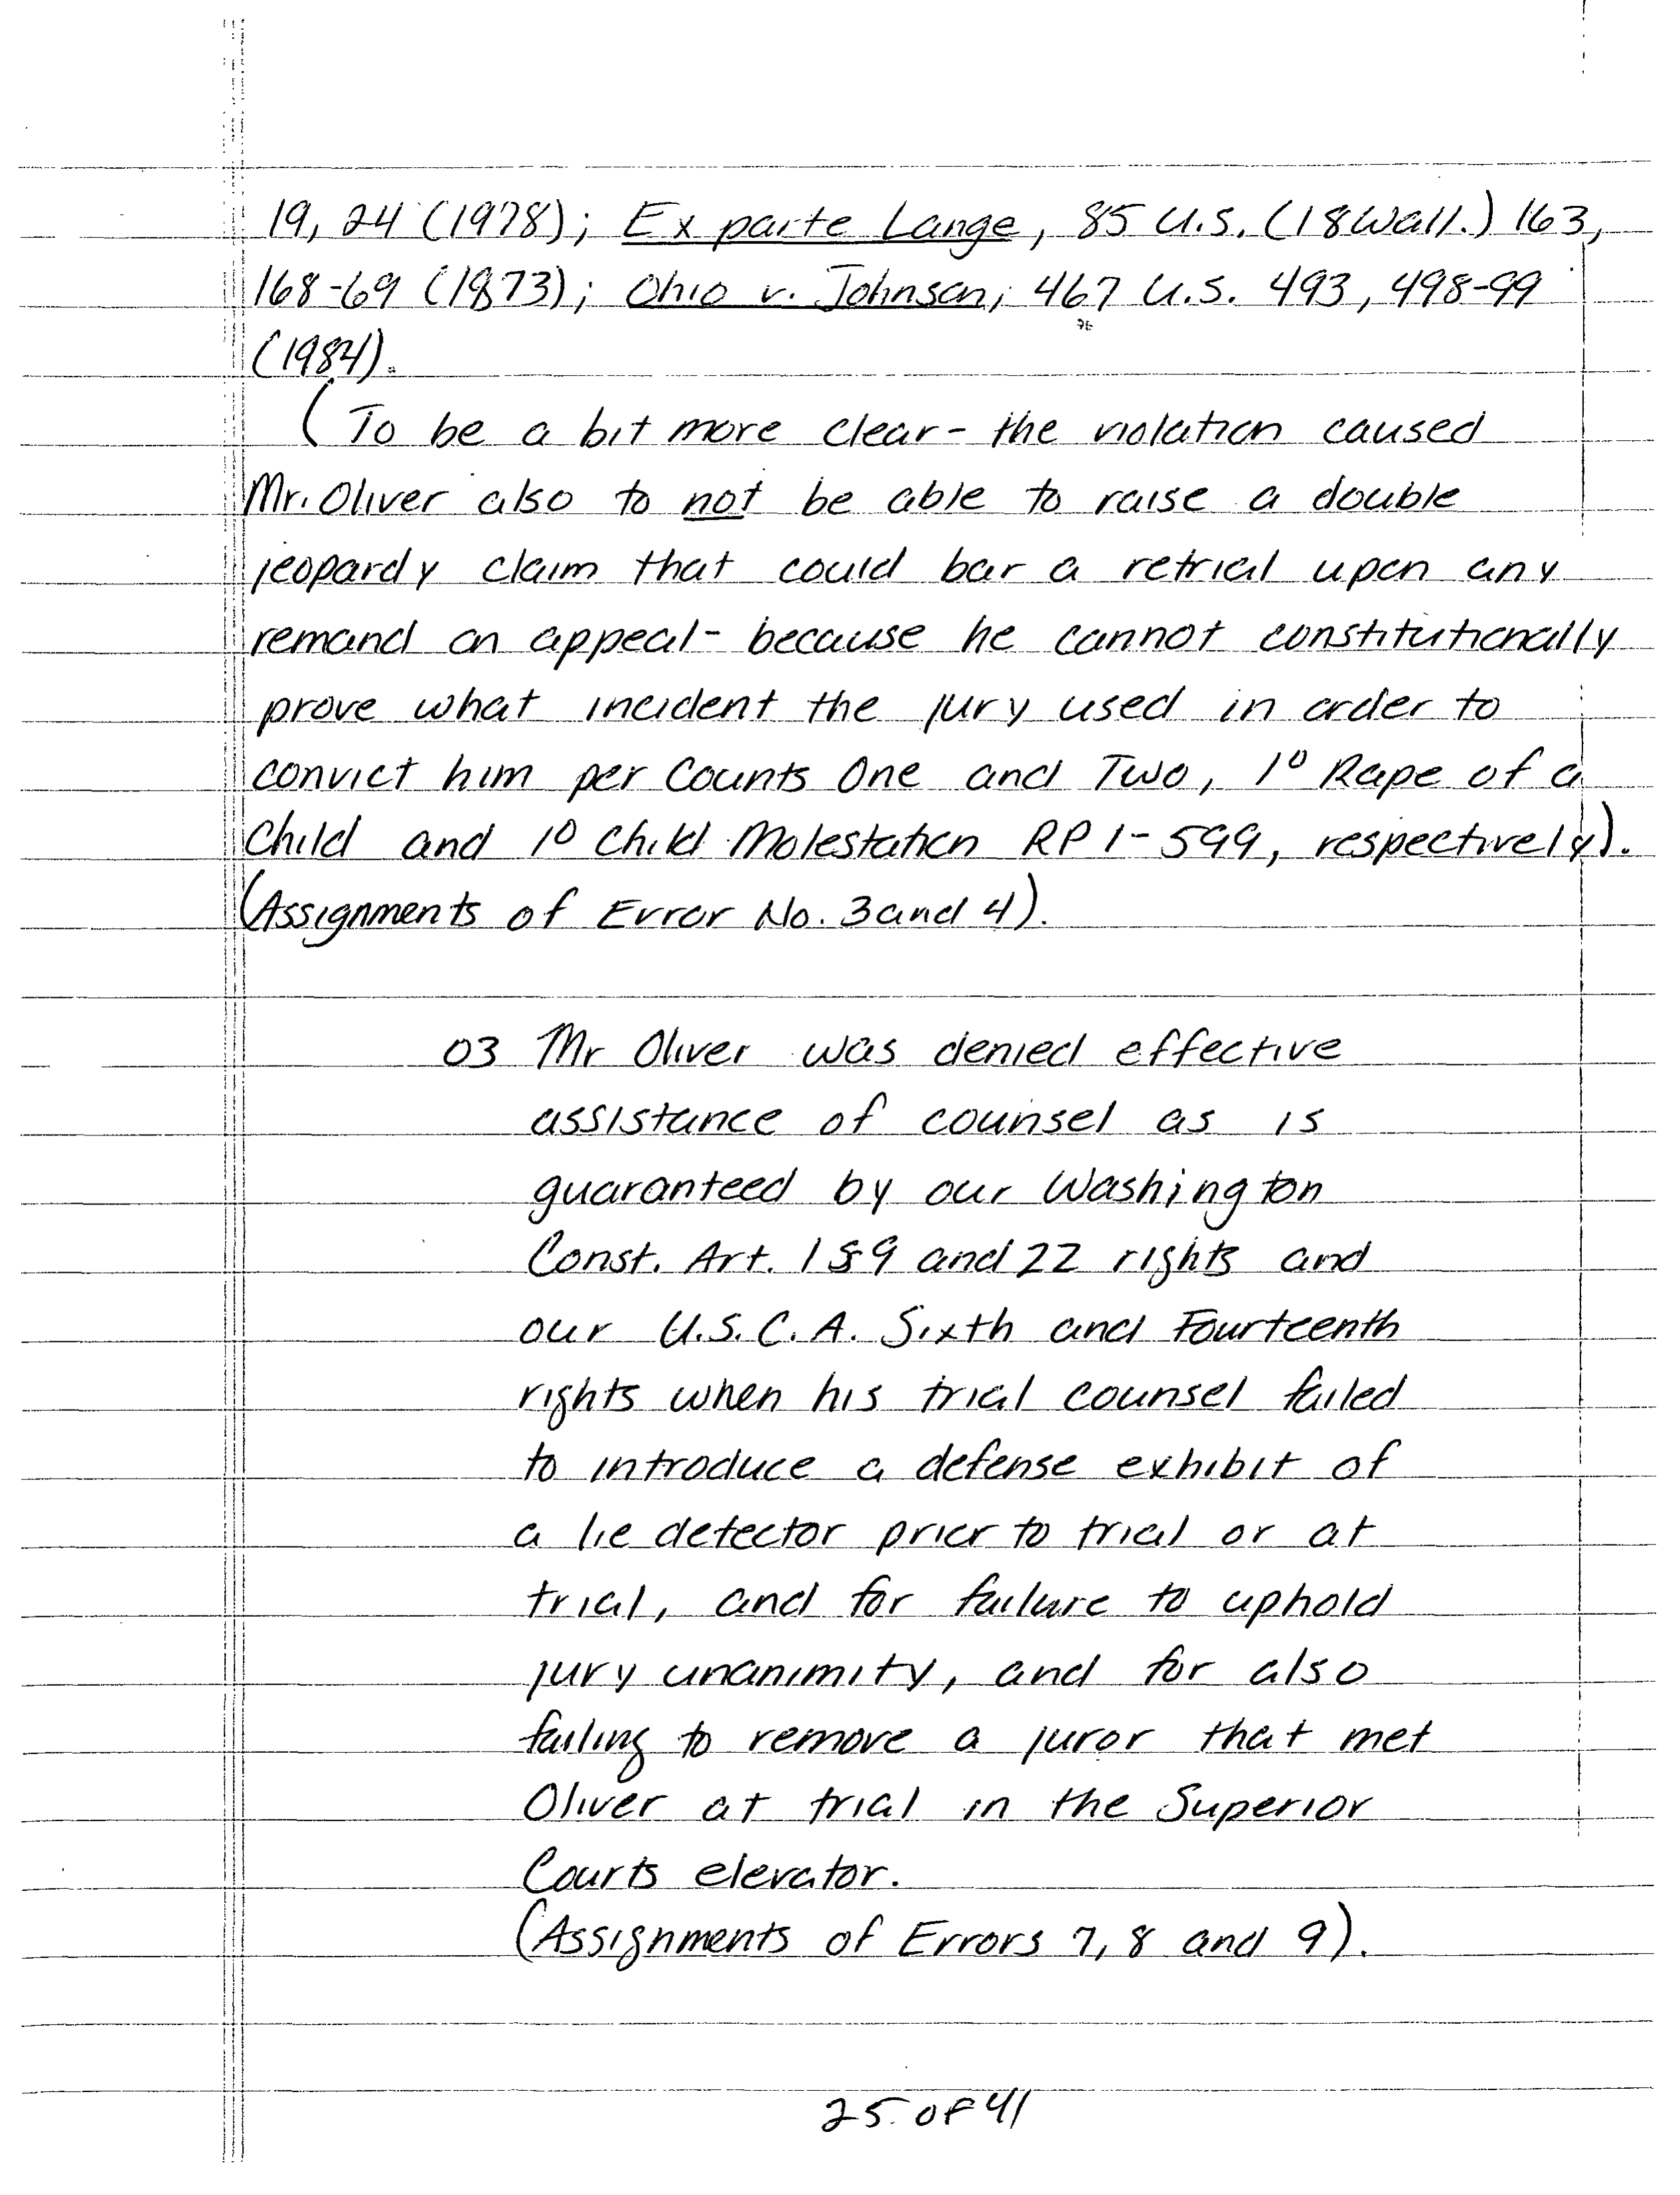 19, 24 (1978); Ex parte Lange, 85 U.S. (18 Wall.) 163,
168-69 (1873); Ohio v. Johnson, 467 U.S. 493, 498-99
(1984).
(To be a bit more clear- the violation caused
Mr. Oliver also to not be able to raise a double
jeopardy claim that could bar a retrial upon any
remand on appeal- because he cannot constitutionally
prove what incident the jury used in order to
convict him per Counts One and Two, 1° Rape of a
Child and 1° Child Molestation RP 1-599, respectively).
(Assignments of Error No. 3 and 4).
03 Mr Oliver was denied effective
assistance of counsel as is
guaranteed by our Washington
Const. Art. 1 §9 and 22 rights and
our U.S.C.A. Sixth and Fourteenth
rights when his trial counsel failed
to introduce a defense exhibit of
a lie detector prior to trial or at
trial, and for failure to uphold
jury unanimity, and for also
failing to remove a juror that met
Oliver at trial in the Superior
Courts elevator.
(Assignments of Errors 7, 8 and 9).
25 of 41